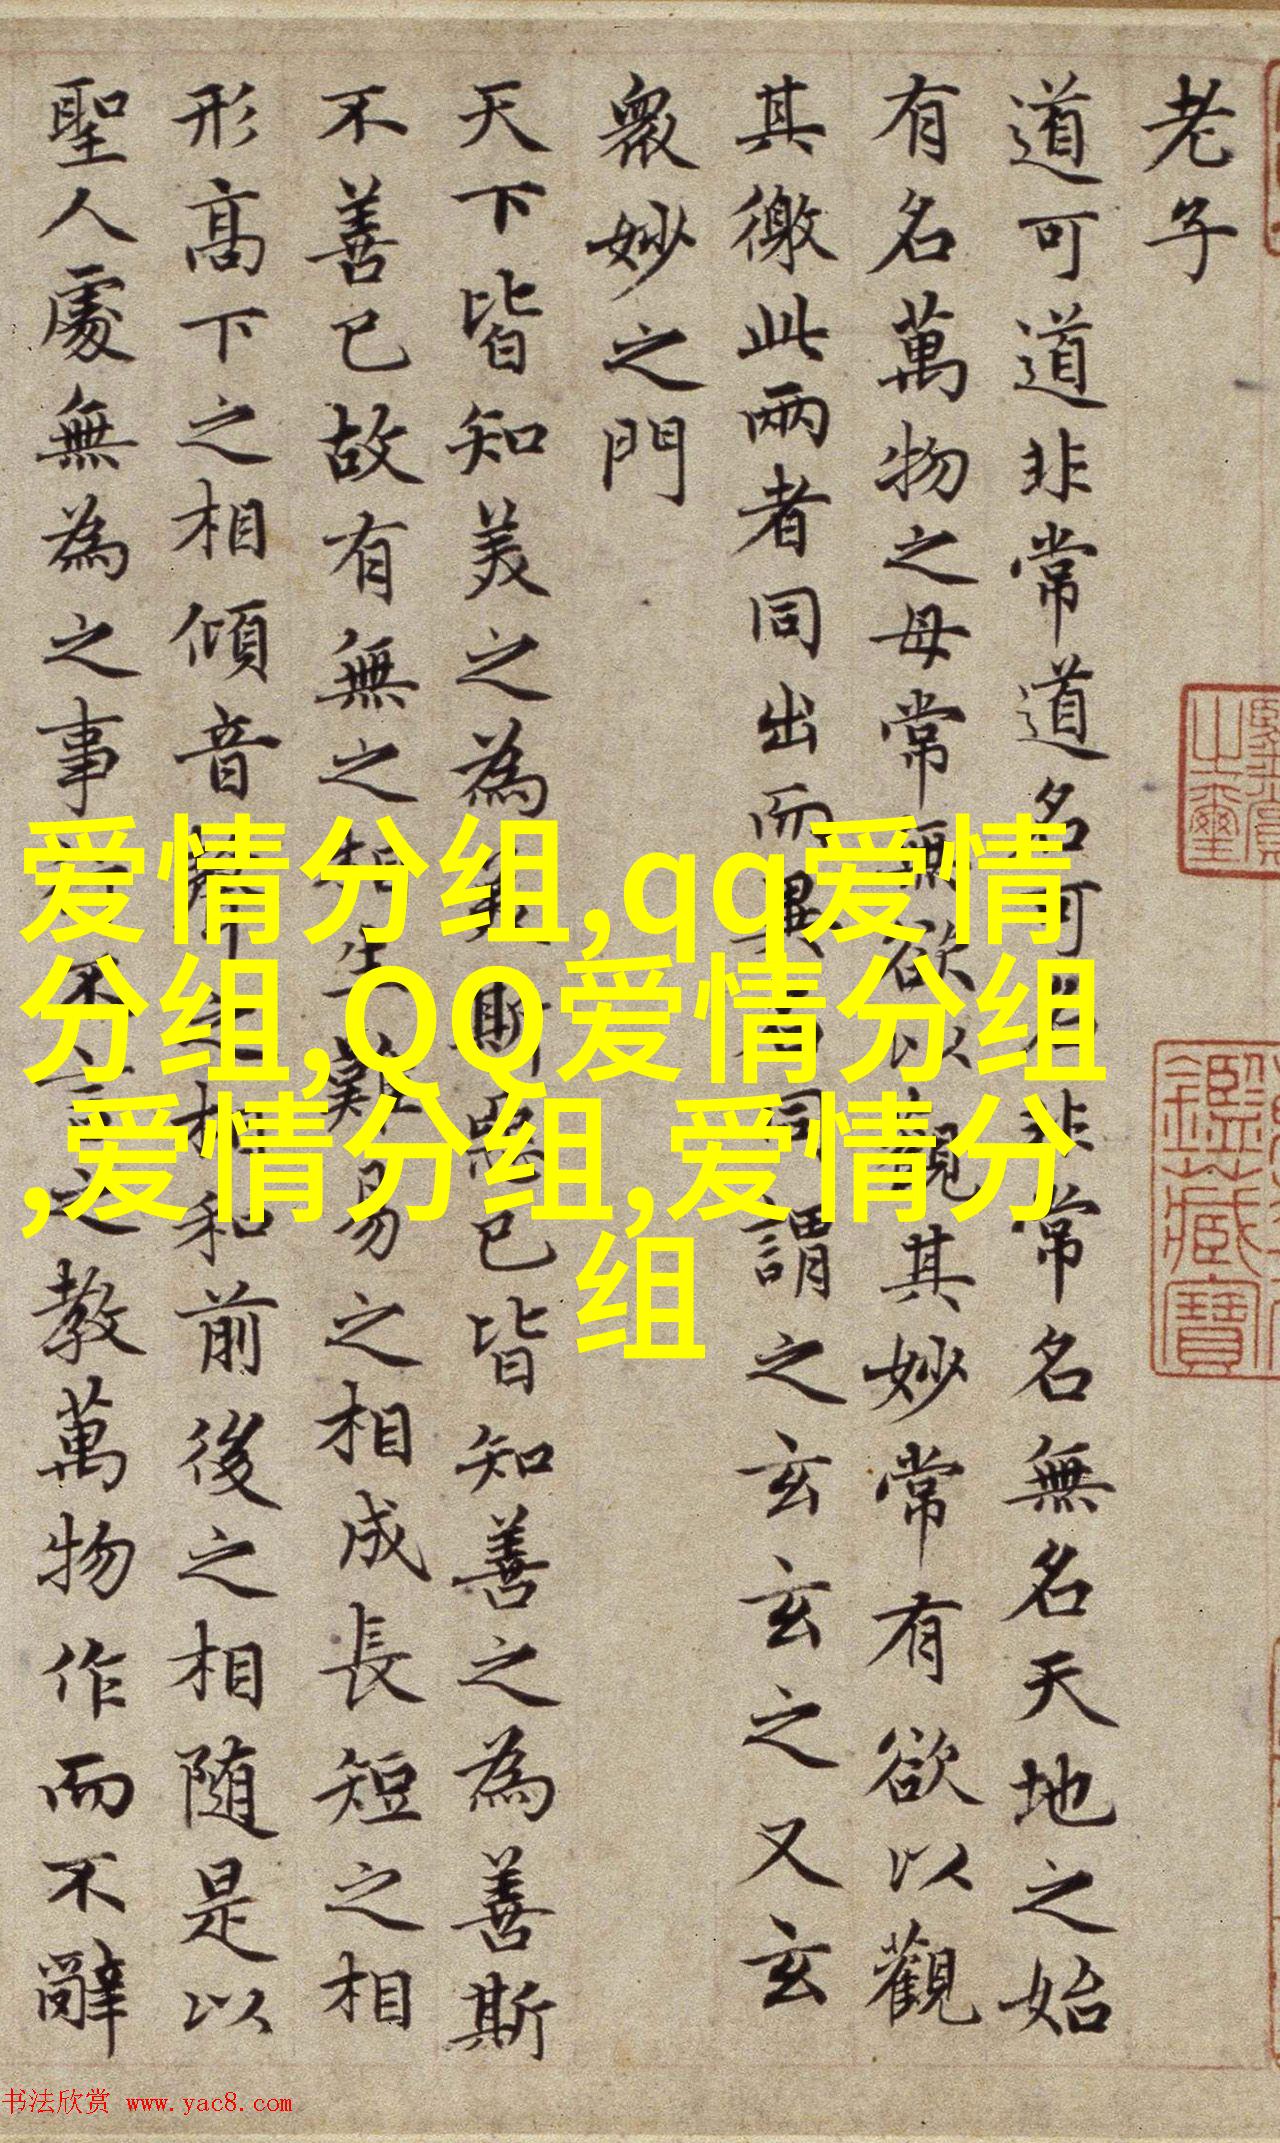 老子
道可道非常道名可名非常名無名天地之始
有名萬物之母常無欲以觀其妙常有欲以觀
其徼此兩者同出而異名同謂之玄玄之又玄
衆妙之門
天下皆知美之為美斯惡已皆知善之為善斯
不善已故有無之相生難易之相成長短之相
形高下之相傾音聲之相和前後之相随是以
聖人處無為之事行不言之教萬物作而不辭
之璽
鑑藏寶
爱情分组,qq爱情
分组,QQ爱情分组
,爱情分组,爱情分
组
书法欣赏 www.yac8.com